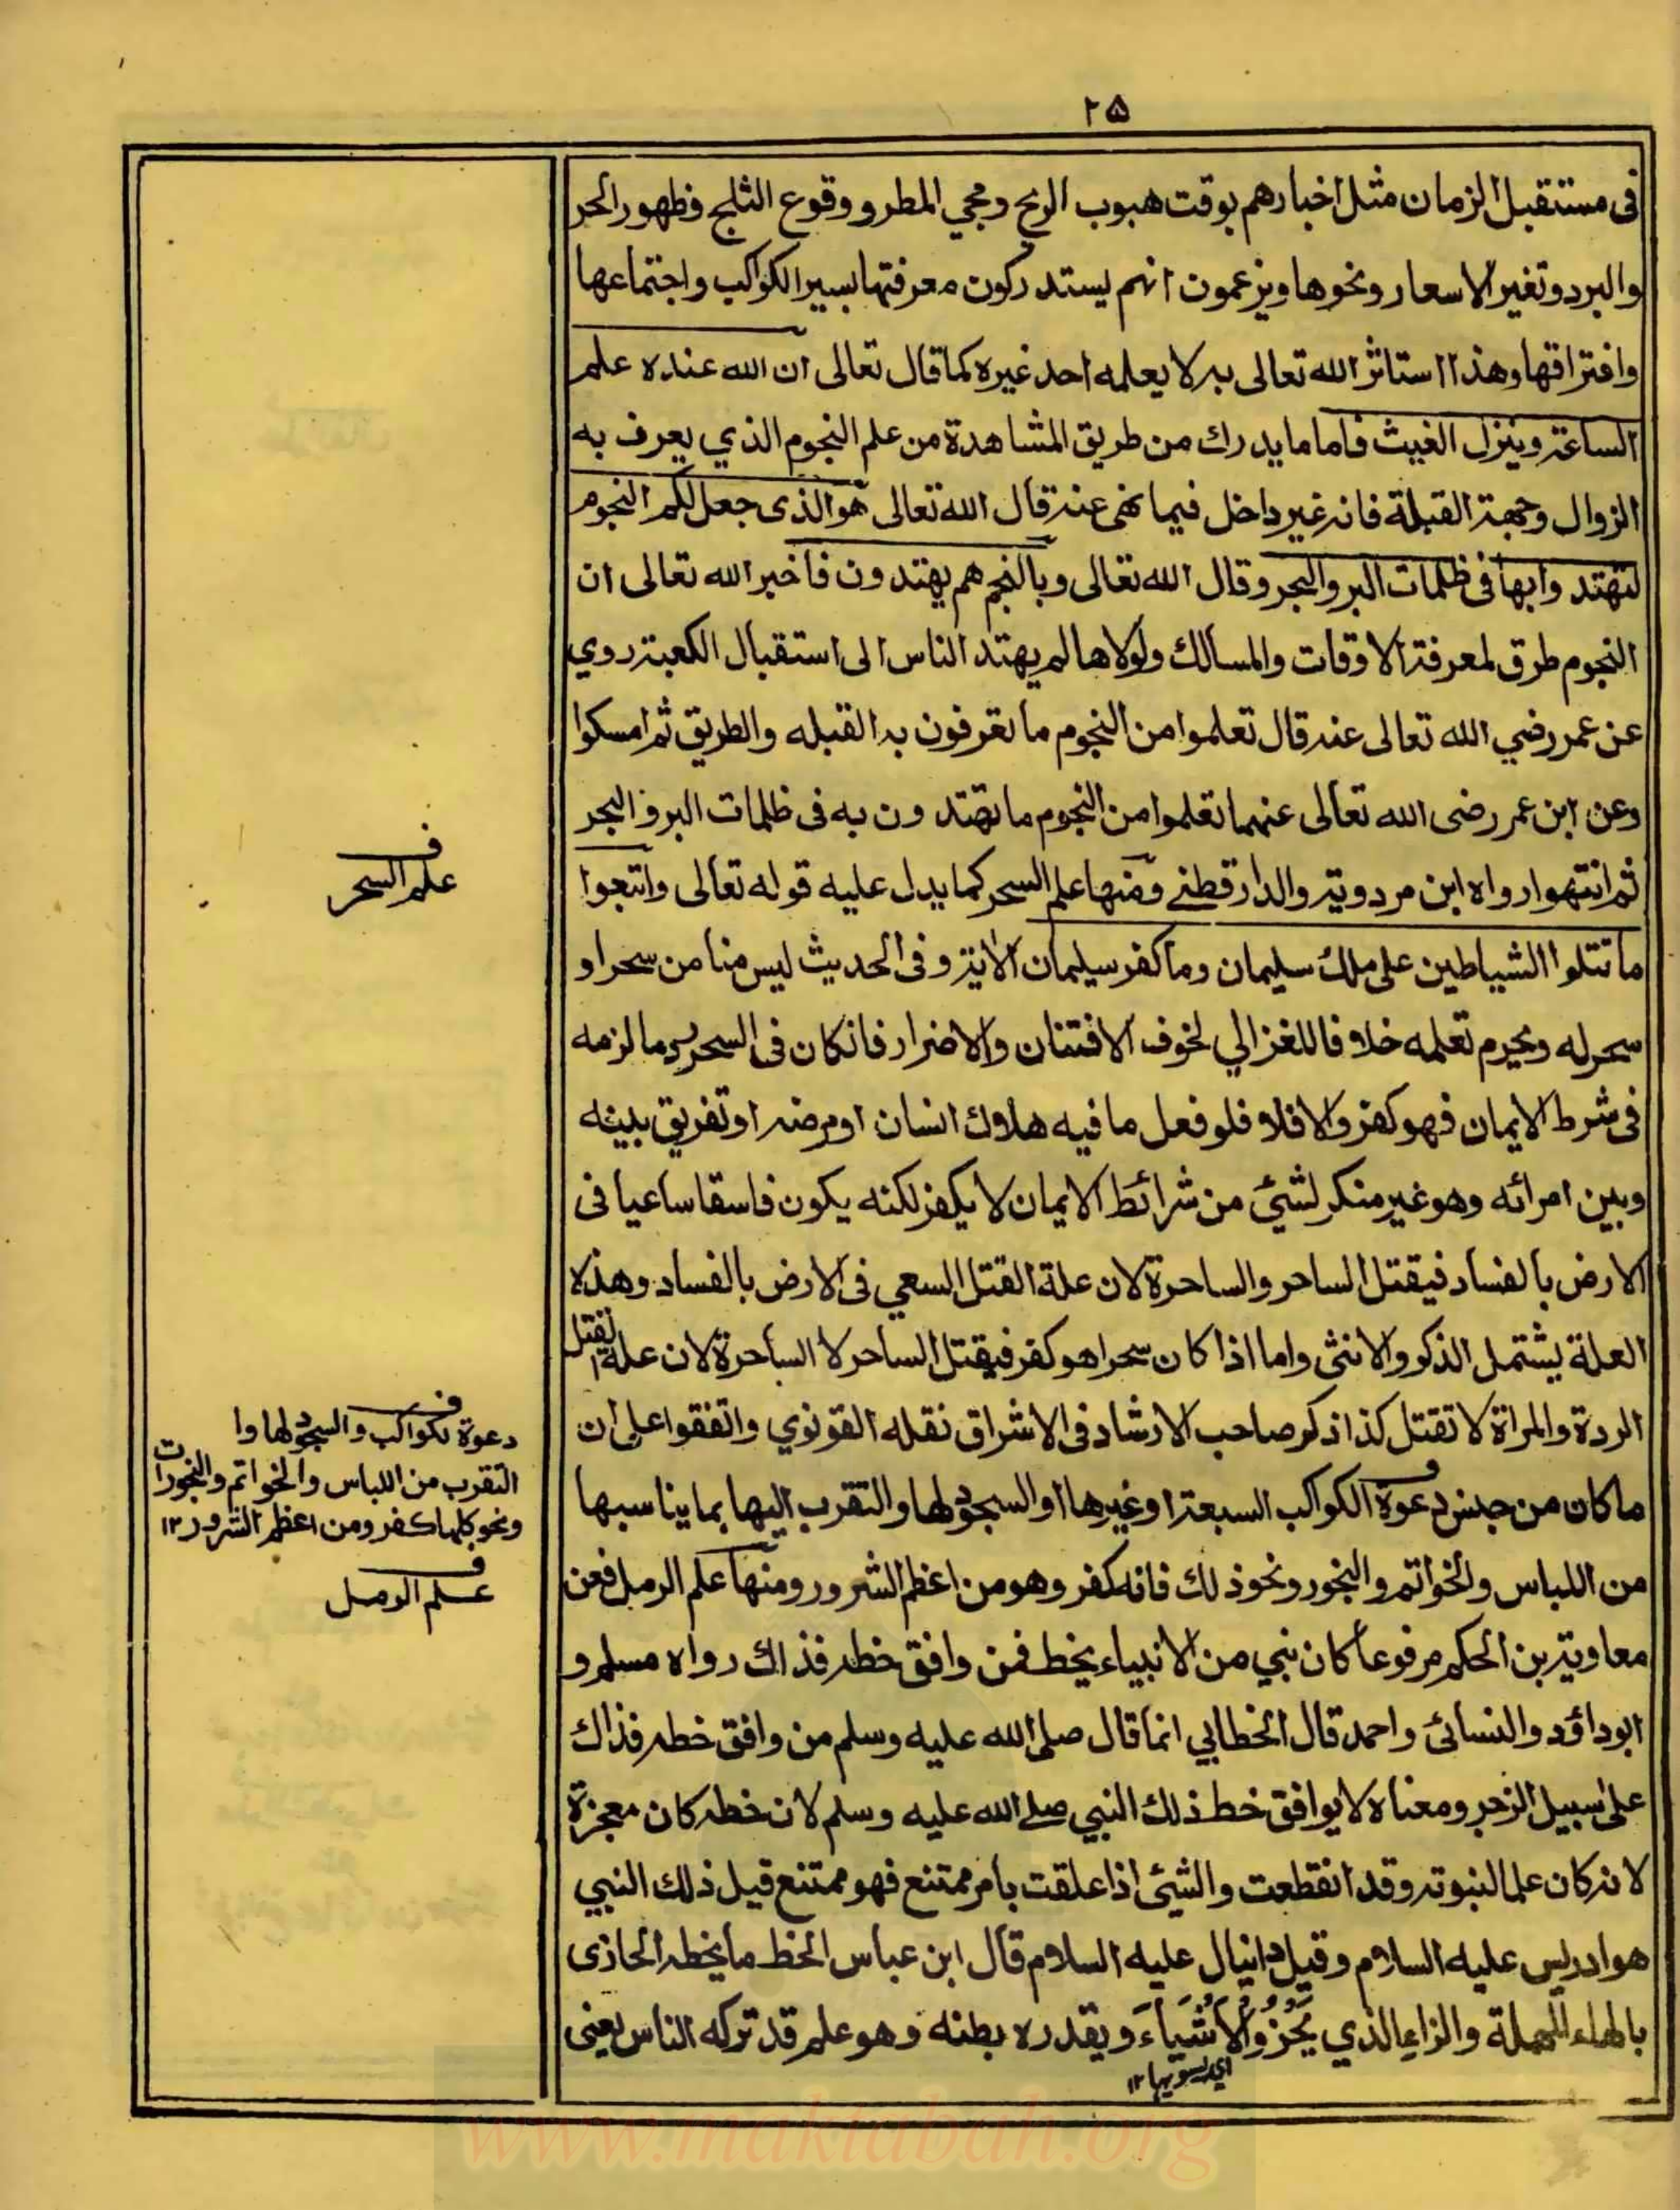 ٢٥
فى مستقبل الزمان مثل اخبارهم بوقت هبوب الريح ومجي المطر ووقوع الثلج وظهور الحر
والبرد وتغير الاسعار ونحوها ويزعمون انهم يستدركون معرفتها بسير الكواكب واجتماعها
وافتراقها وهذا استاثر الله تعالى به لا يعلمه احد غيره كما قال تعالى ان الله عنده علم
الساعة وينزل الغيث فاما ما يدرك من طريق المشاهدة من علم النجوم الذي يعرف به
الزوال وجهة القبلة فانه غير داخل فيما نهى عنه قال الله تعالى هو الذى جعل لكم النجوم
لتهتدوا بها فى ظلمات البر والبحر وقال الله تعالى وبالنجم هم يهتدون فاخبر الله تعالى ان
النجوم طرق لمعرفة الاوقات والمسالك ولولاها لم يهتد الناس الى استقبال الكعبة روي
عن عمر رضي الله تعالى عنه قال تعلموا من النجوم ما تعرفون به القبله والطريق ثم امسكوا
وعن ابن عمر رضى الله تعالى عنهما تعلموا من النجوم ما تهتدون به فى ظلمات البر والبحر
ثم انتهوا رواه ابن مردوية والدارقطنے ومنها علم السحر كما يدل عليه قوله تعالى واتبعوا
ما تتلوا الشياطين على ملك سليمان وما كفر سليمان الاية وفى الحديث ليس منا من سحر او
سحر له ويحرم تعلمه خلافا للغزالي لخوف الافتتان والاضرار فانكان فى السحر رد ما لزمه
فى شرط الايمان فهو كفر والا فلا فلو فعل ما فيه هلاك انسان او مرضه او تفريق بينه
وبين امرائه وهو غير منكر لشئ من شرائط الايمان لا يكفر لكنه يكون فاسقا ساعيا فى
الارض بالفساد فيقتل الساحر والساحرة لان علة القتل السعي فى الارض بالفساد وهذه
العلة يشتمل الذكر والانثى واما اذا كان سحرا هو كفر فيقتل الساحر لا الساحرة لان علة القتل
الردة والمراة لا تقتل كذا ذكر صاحب الارشاد فى الاشراق نقله القونوي واتفقوا على ان
ما كان من جنس دعوة الكواكب السبعة او غيرها او السجود لها والتقرب اليها بما يناسبها
من اللباس والخواتم والبخور ونحو ذلك فانه كفر وهو من اعظم الشرور ومنها علم الرمل فعن
معاوية بن الحكم مرفوعا كان نبي من الانبياء يخط فمن وافق خطه فذاك رواه مسلم و
ابو داؤد والنسائى واحمد قال الخطابي انما قال صلى الله عليه وسلم من وافق خطه فذاك
على سبيل الزجر ومعناه لا يوافق خط ذلك النبي صلے الله عليه وسلم لان خطه كان معجزة
لانه كان علما لنبوته وقد انقطعت والشئ اذا علقت بامر ممتنع فهو ممتنع قيل ذلك النبي
هو ادريس عليه السلام وقيل دانيال عليه السلام قال ابن عباس الخط ما يخطه الحازى
بالهاء المهملة والزاي الذي يَحْزُوُ الْاَشْيَاءَ ويقدره بطنه وهو علم قد تركه الناس يعنى
اي يسويها ١٢
ف
علم السحر
ف
دعوة كواكب والسجود لها وا
التقرب من اللباس والخواتم والبخورات
ونحو كلها كفر ومن اعظم الشرور ١٢
ف
علم الرمل
www.maktabah.org